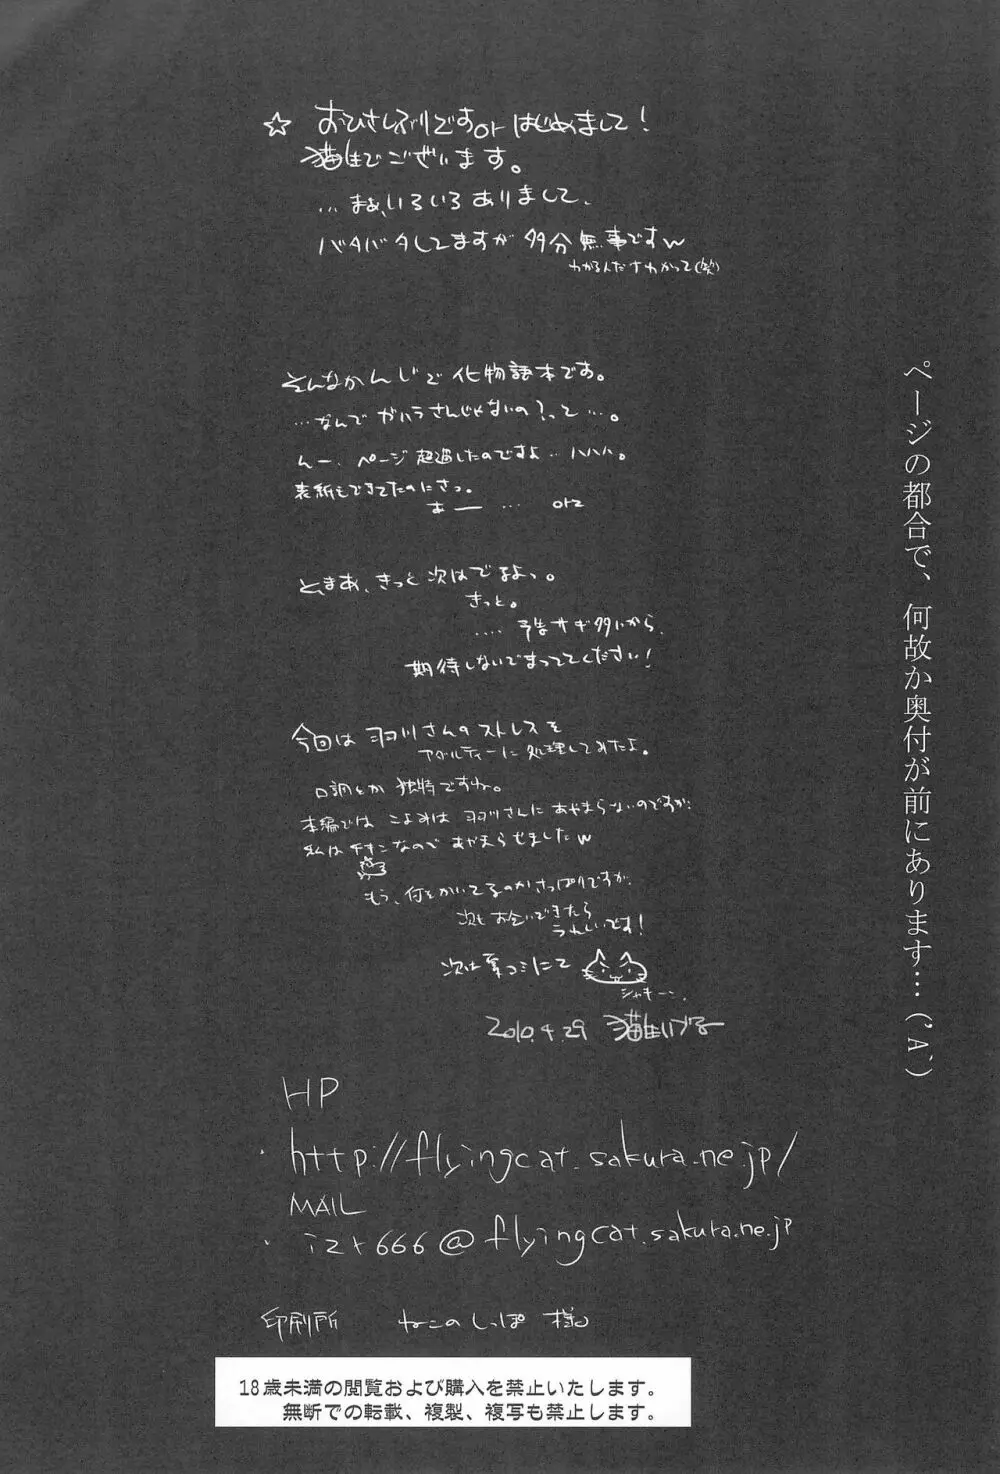 ページの都合で、何故か奥付が前にあります…('A`)
☆ おひさしぶりですorはじめまして!
猫生でございます。
…まぁ、いろいろありまして、
バタバタしてますが多分無事ですw
わかるんださわかって(笑)
そんなかんじで化物語本です。
…なんでガハラさんじゃないの?って…。
んー、ページ超過したのですよ…ハハハ。
表紙もできてたのにさっ。
あー … orz
とまあ、きっと次はでるよっ。
きっと。
…. 予告サギ多いから、
期待しないでまっててください!
今回は羽川さんのストレスを
アダルティーに処理してみたよ。
口調とか独特ですね。
本編ではこよみは羽川さんにあやまらないのですが、
私はチキンなのであやまらせましたw
もう、何をかいてるのかさっぱりですが、
次もお会いできたら
うれしいです!
次は夏コミにて
シャキーン
2010.4.29 猫生いづる
HP
・http://flyingcat.sakura.ne.jp/
MAIL
・izr666@flyingcat.sakura.ne.jp
印刷所 ねこのしっぽ 様
18歳未満の閲覧および購入を禁止いたします。
無断での転載、複製、複写も禁止します。